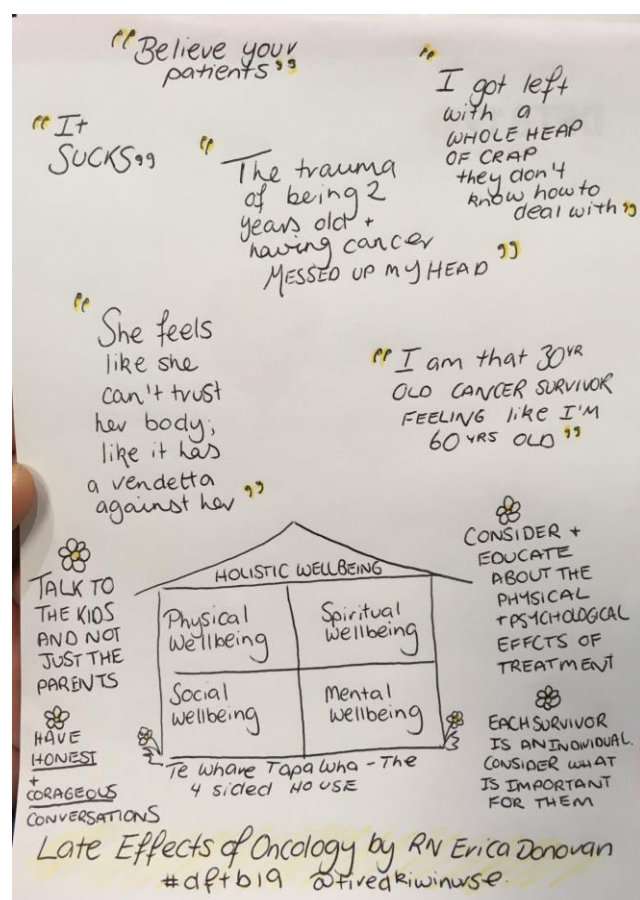 "Believe your
patients"
"It
SUCKS"
"The trauma
of being 2
years old +
having cancer
MESSED UP MY HEAD"
"I got left
with a
WHOLE HEAP
OF CRAP
they don't
know how to
deal with"
"She feels
like she
can't trust
her body;
like it has
a vendetta
against her"
"I am that 30YR
OLD CANCER SURVIVOR
FEELING like I'M
60 YRS OLD"
TALK TO
THE KIDS
AND NOT
JUST THE
PARENTS
HAVE
HONEST
+
CORAGEOUS
CONVERSATIONS
HOLISTIC WELLBEING
Physical
Wellbeing
Spiritual
Wellbeing
Social
Wellbeing
Mental
Wellbeing
Te Whare Tapa Wha - The
4 sided HOUSE
CONSIDER +
EDUCATE
ABOUT THE
PHYSICAL
+ PSYCHOLOGICAL
EFFCTS OF
TREATMENT
EACH SURVIVOR
IS AN INDIVIDUAL.
CONSIDER WHAT
IS IMPORTANT
FOR THEM
Late Effects of Oncology by RN Erica Donovan
#dftb19 @tiredkiwinurse.